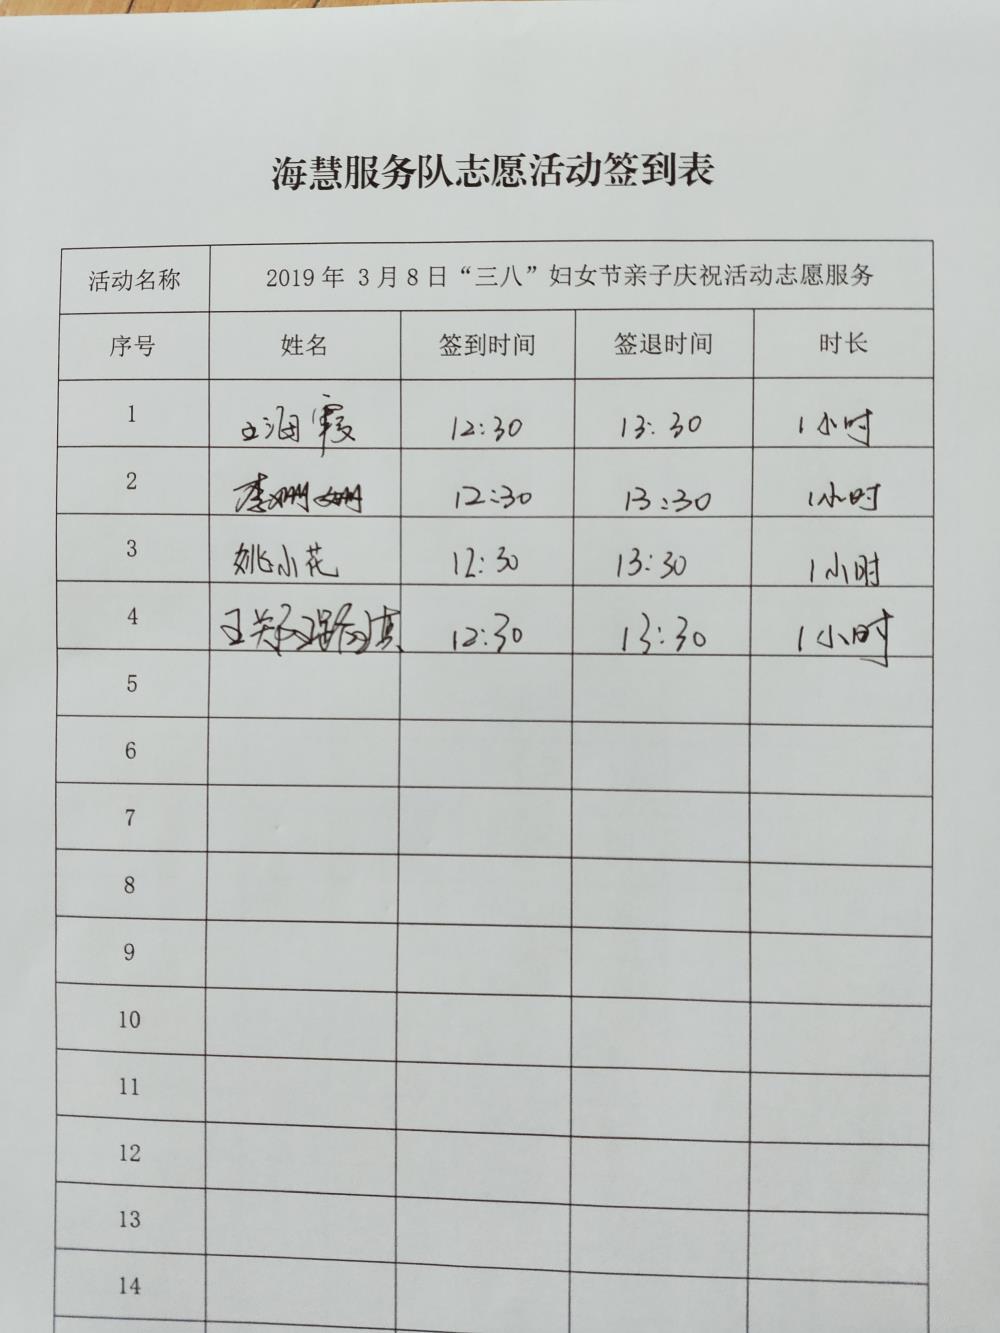 海慧服务队志愿活动签到表
活动名称 2019年 3月8日“三八”妇女节亲子庆祝活动志愿服务
序号 姓名 签到时间 签退时间 时长
1 王海霞 12:30 13:30 1小时
2 李姗姗 12:30 13:30 1小时
3 姚小花 12:30 13:30 1小时
4 12:30 13:30 1小时
5
6
7
8
9
10
11
12
13
14